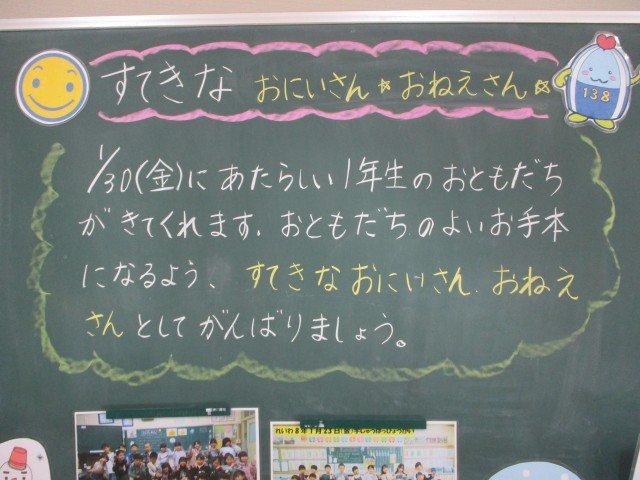 すてきな おにいさん☆おねえさん☆
138
1/30(金)にあたらしい1年生のおともだち
がきてくれます。おともだちのよいお手本
になるよう、すてきなおにいさん、おねえ
さんとしてがんばりましょう。